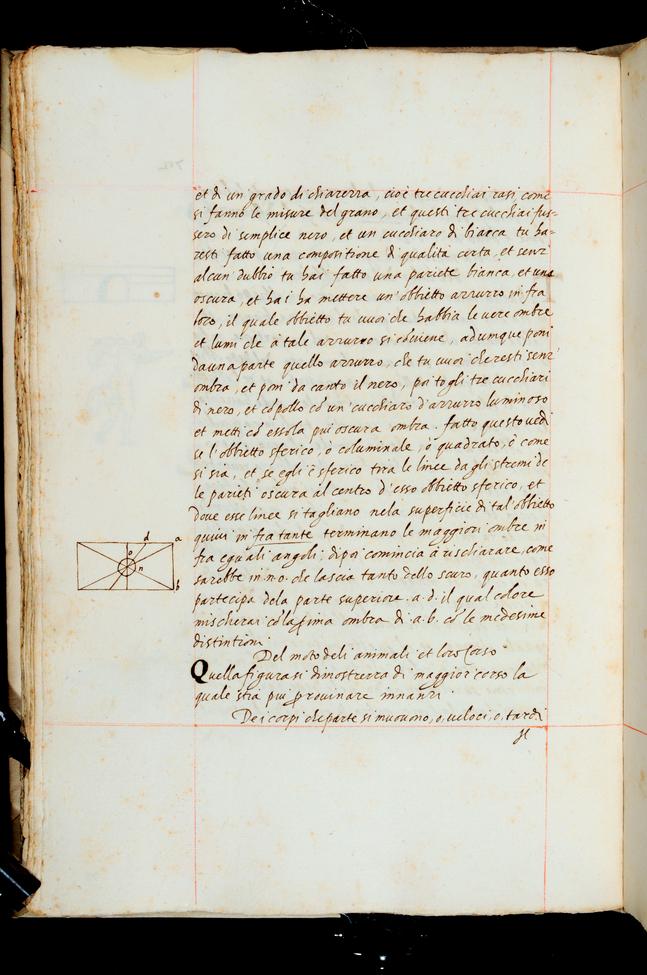 et di un grado di chiarezza, cioè tre cucchiai rasi come
si fanno le misure del grano, et questi tre cucchiai fus-
sero di semplice nero, et un cucchiaro di biacca tu ha-
resti fatto una compositione di qualità certa, et senz'
alcun dubbio tu hai fatto una pariete bianca, et una
oscura, et hai ha mettere un'obbietto azzurro in fra
loro, il quale obbietto tu vuoi che habbia le vere ombre
et lumi che à tale azzurro si cōviene, adumque poni
da una parte quello azzurro, che tu vuoi che resti senz'
ombra, et poni da canto il nero, poi togli tre cucchiari
di nero, et cōpollo cō un'cucchiaro d'azzurro luminoso
et metti cō essola piu oscura ombra. fatto questo vedi
se l'obbietto sferico, ò columnale, ò quadrato, è come
si sia, et se egli è sferico tria le linee dagli stremi de
le parieti oscura al centro d'esso obbietto sferico, et
dove esse linee si tagliano nela superficie di tal'obbietto
quivi in fra tante terminano le maggiori ombre in
fra eguali angoli; dipoi comincia à rischiarare, come
sarebbe in .n.o. che lascia tanto dello scuro, quanto esso
partecipa dela parte superiore .a.d. il qual colore
mischerai cō la prima ombra di .a.b. cō le medesime
distintioni.
d a
o
n
b
Del moto deli animali et loro Corso
Quella figura si dimostrerra di maggior'corso la
quale stia piu p rovinare innanzi.
De i corpi che parte si muovono, o, veloci, o, tardi
Il